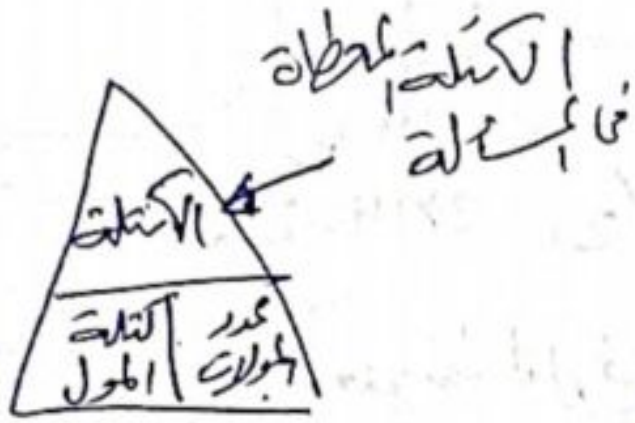 الكتلة المعطاة
في المسألة
الكتلة
عدد كتلة
المولات المول